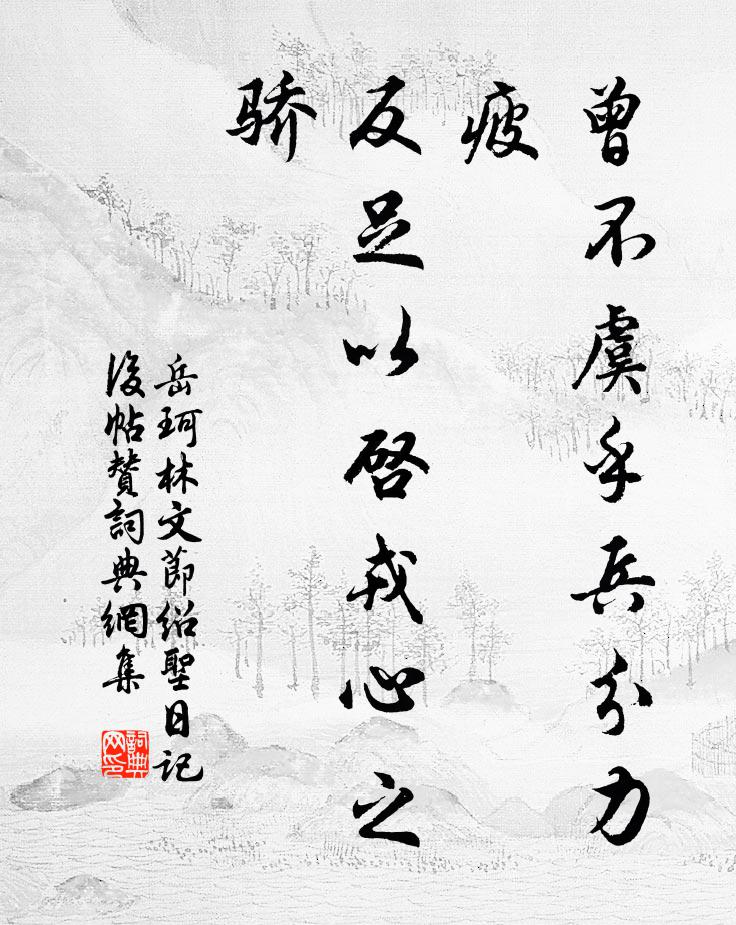 曾不虞乎兵分力
疲
反足以启戎心之
骄
岳珂林文節紹聖日记
後帖賛詞典網集
詞典
网印